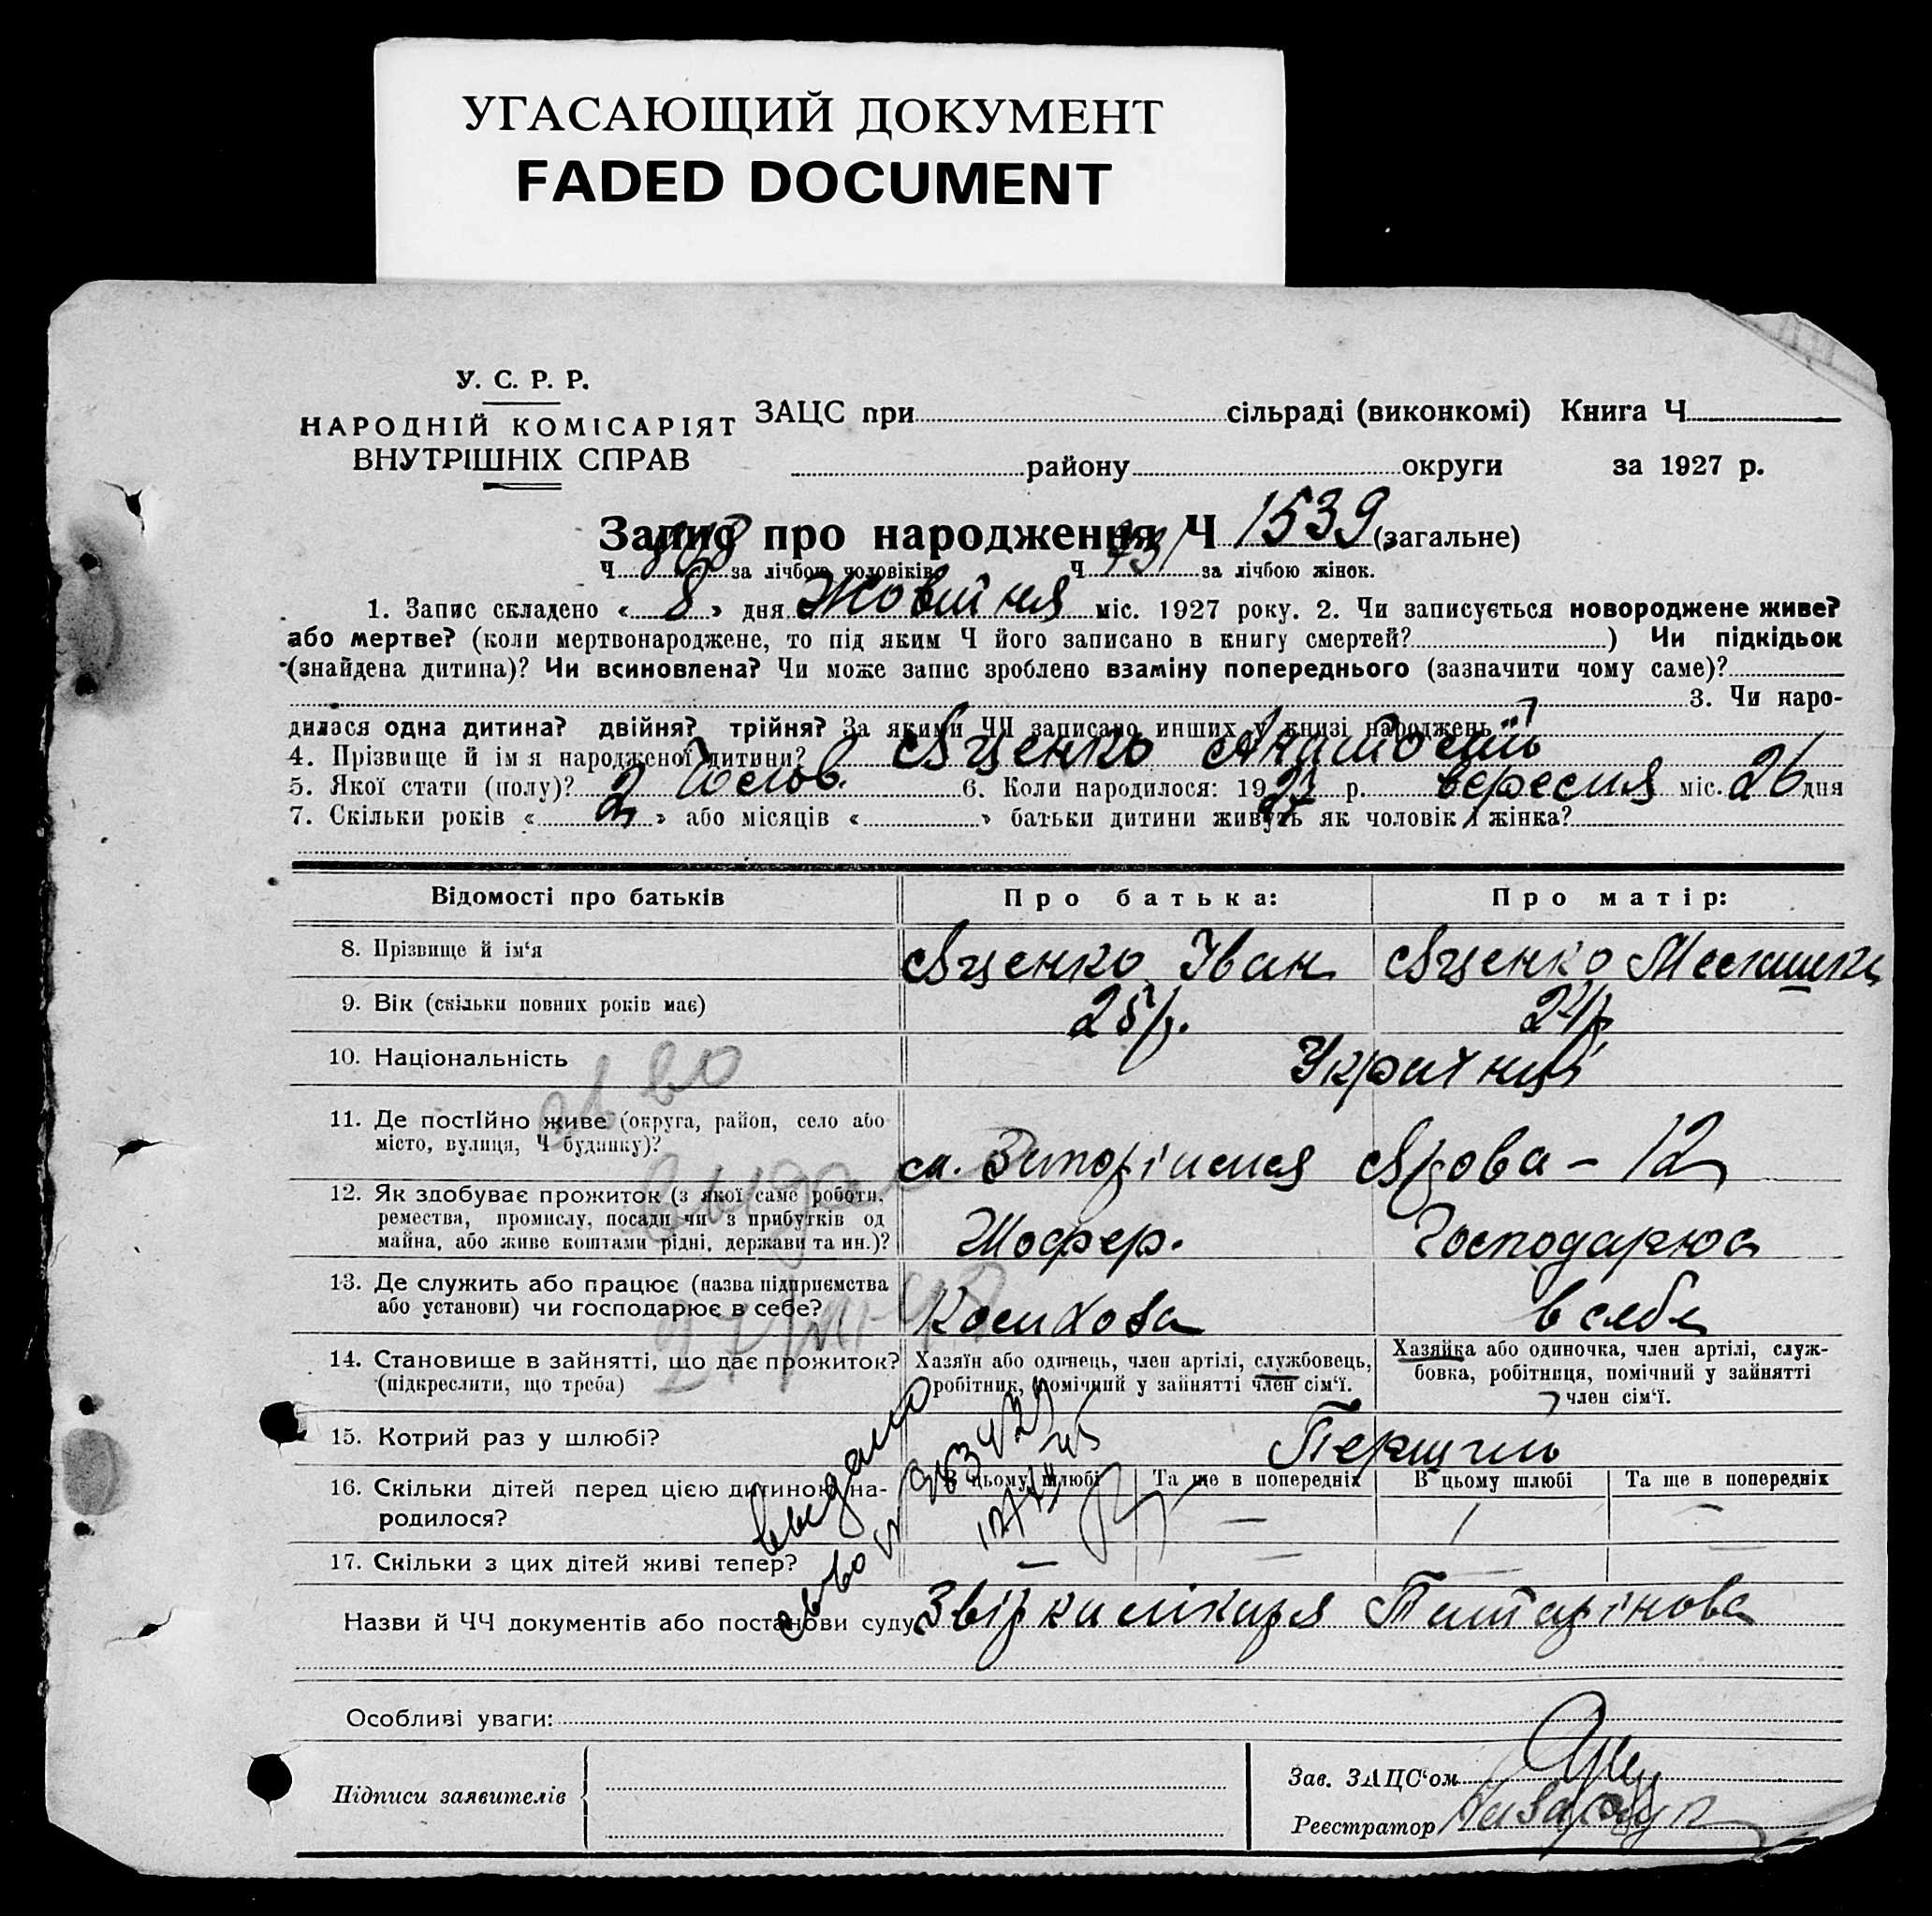 УГАСАЮЩИЙ ДОКУМЕНТ
FADED DOCUMENT
У. С. Р. Р.
НАРОДНІЙ КОМІСАРІЯТ
ВНУТРІШНІХ СПРАВ
ЗАЦС при сільраді (виконкомі) Книга Ч
району округи за 1927 р.
Запис про народження Ч 1539 (загальне)
Ч 808 за лічбою чоловіків Ч 731 за лічбою жінок.
1. Запис складено « 8 » дня Жовтня міс. 1927 року. 2. Чи записується новороджене живе?
або мертве? (коли мертвонароджене, то під яким Ч його записано в книгу смертей? ) Чи підкідьок
(знайдена дитина)? Чи всиновлена? Чи може запис зроблено взаміну попереднього (зазначити чому саме)?
3. Чи наро-
дилася одна дитина? двійня? трійня? За якими ЧЧ записано инших у книзі народжень
4. Прізвище й ім'я народженої дитини? Яценко Анатолій
5. Якої стати (полу)? Чолов. 6. Коли народилося: 1927 р. вересня міс. 26 дня
7. Скільки років « 2 » або місяців « » батьки дитини живуть як чоловік і жінка?
Відомості про батьків
Про батька:
Про матір:
8. Прізвище й ім'я
Яценко Іван
Яценко
9. Вік (скільки повних років має)
25 р.
24 р.
10. Національність
Українці
11. Де постійно живе (округа, район, село або
місто, вулиця, Ч будинку)?
м. Запоріжжя 12
12. Як здобуває прожиток (з якої саме роботи,
ремества, промислу, посади чи з прибутків од
майна, або живе коштами рідні, держави та ин.)?
Шофер.
Господарює
13. Де служить або працює (назва підприємства
або установи) чи господарює в себе?
в себе
14. Становище в зайнятті, що дає прожиток?
(підкреслити, що треба)
Хазяїн або одинець, член артілі, службовець,
робітник, помічний у зайнятті член сім'ї.
Хазяйка або одиночка, член артілі, служ-
бовка, робітниця, помічний у зайнятті
член сім'ї.
15. Котрий раз у шлюбі?
Першим
16. Скільки дітей перед цією дитиною на-
родилося?
В цьому шлюбі
Та ще в попередніх
В цьому шлюбі
Та ще в попередніх
—
1
—
17. Скільки з цих дітей живі тепер?
—
—
—
—
Назви й ЧЧ документів або постанови суду
Звірка лікаря
выдано
Особливі уваги:
Підписи заявителів
Зав. ЗАЦС'ом
Реєстратор